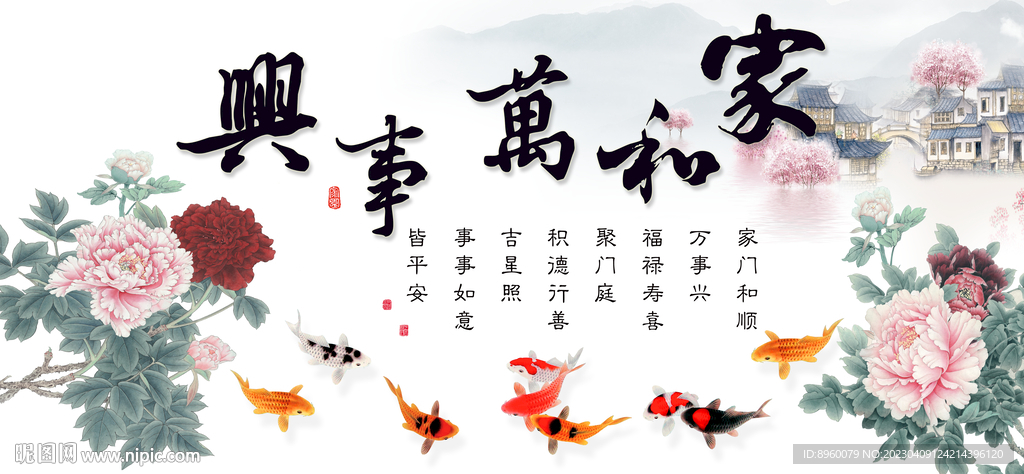 家和萬事興
家门和顺
万事兴
福禄寿喜
聚门庭
积德行善
吉星照
事事如意
皆平安
昵图网 www.nipic.com
ID:8960079 NO:20230409124214396120